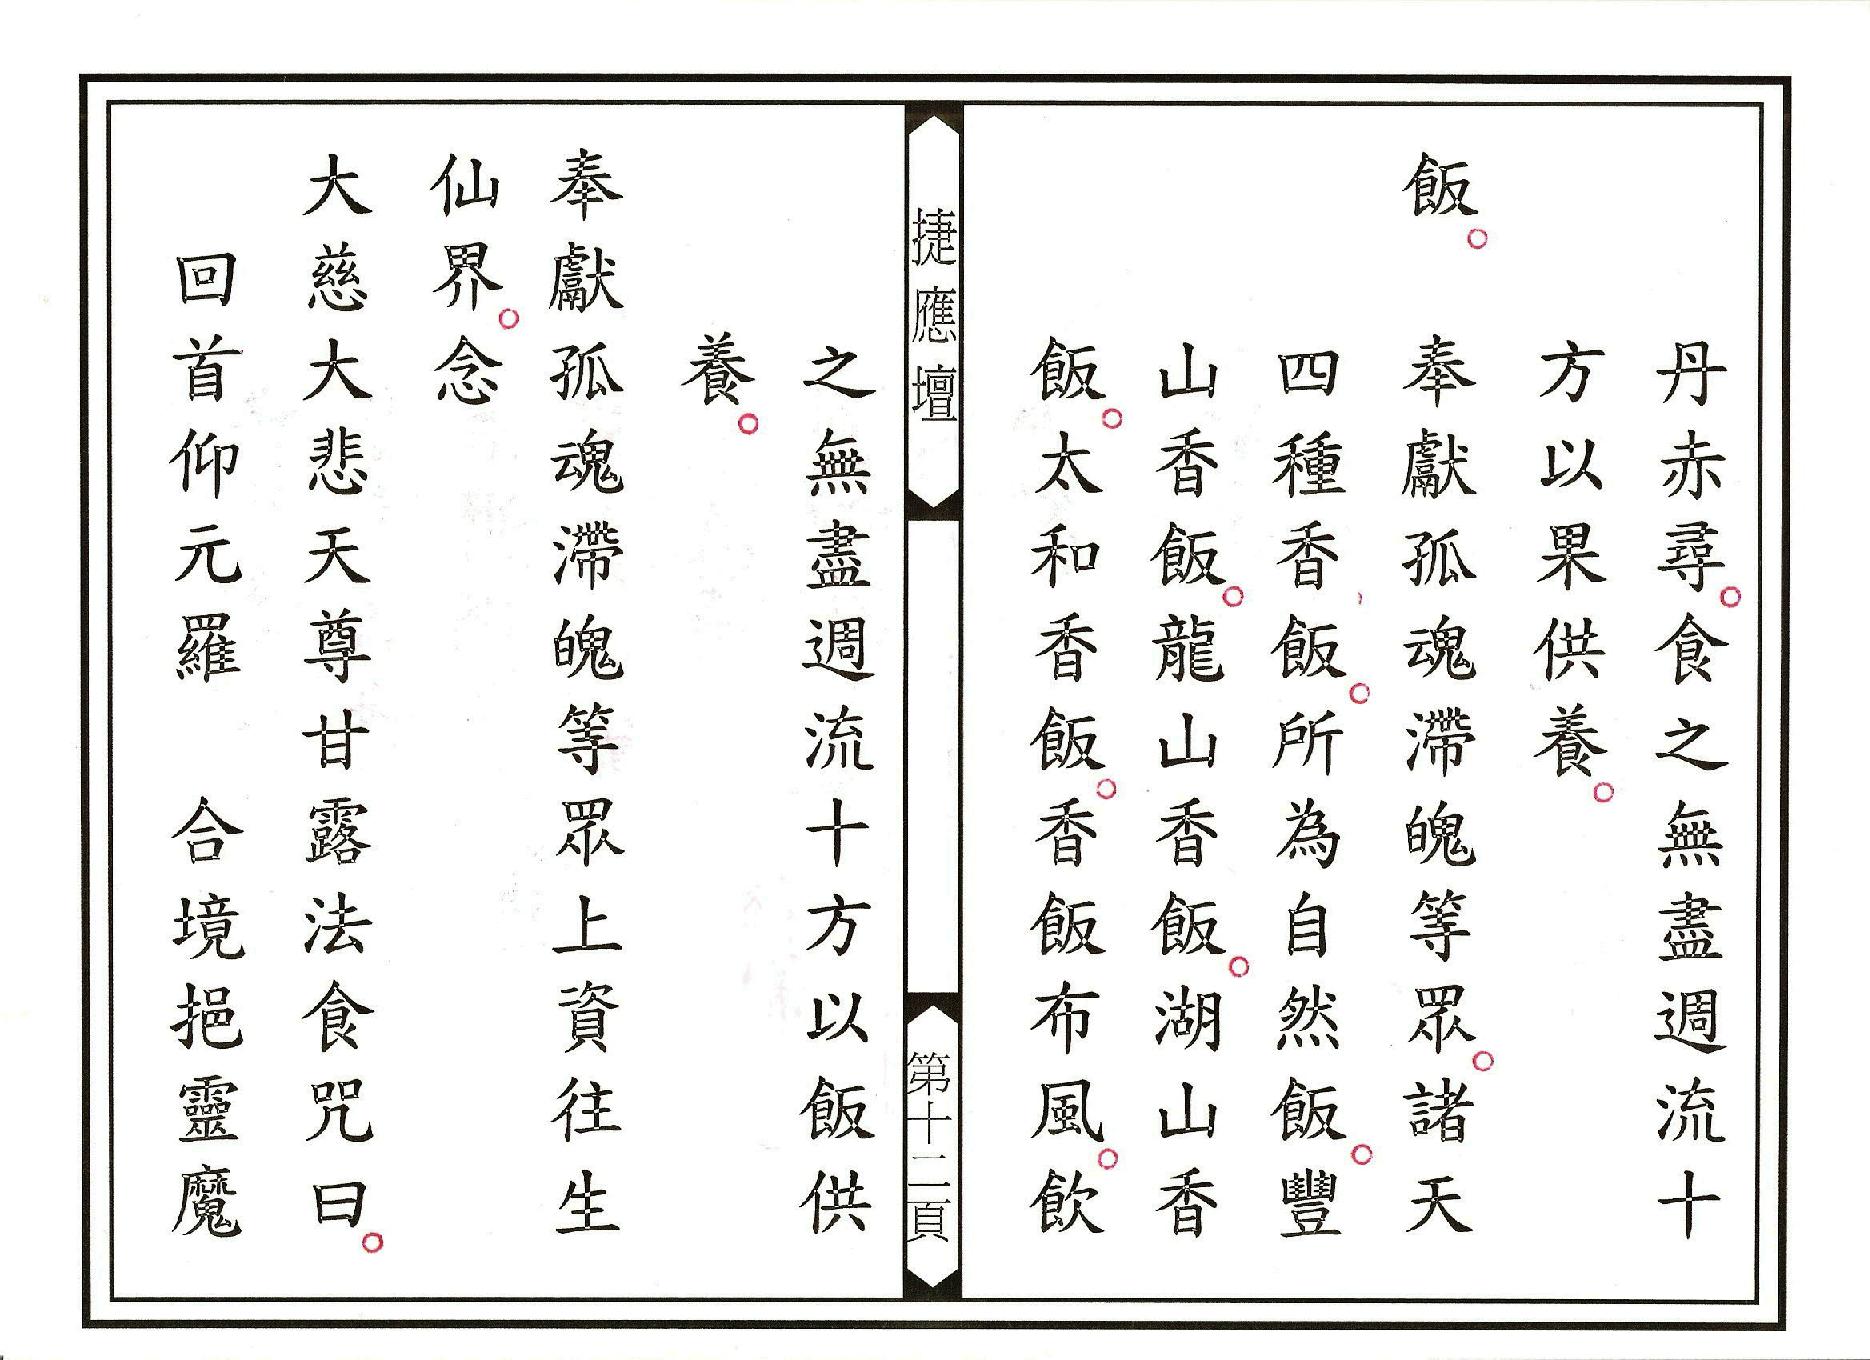 丹赤尋。食之無盡週流十
方以果供養。
飯。奉獻孤魂滯魄等眾。諸天
四種香飯。所為自然飯。豐
山香飯。龍山香飯。湖山香
飯。太和香飯。香飯布風。飲
捷應壇
第十二頁
之無盡週流十方以飯供
養。
奉獻孤魂滯魄等眾上資往生
仙界。念
大慈大悲天尊甘露法食咒曰。
回首仰元羅 合境挹靈魔